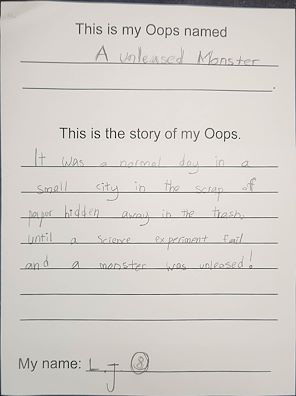 This is my Oops named
A unleased Monster
This is the story of my Oops.
It was a normal day in a
small city in the scrap of
paper hidden away in the trash,
until a science experiment fail
and a monster was unleased!
My name: L.J 8